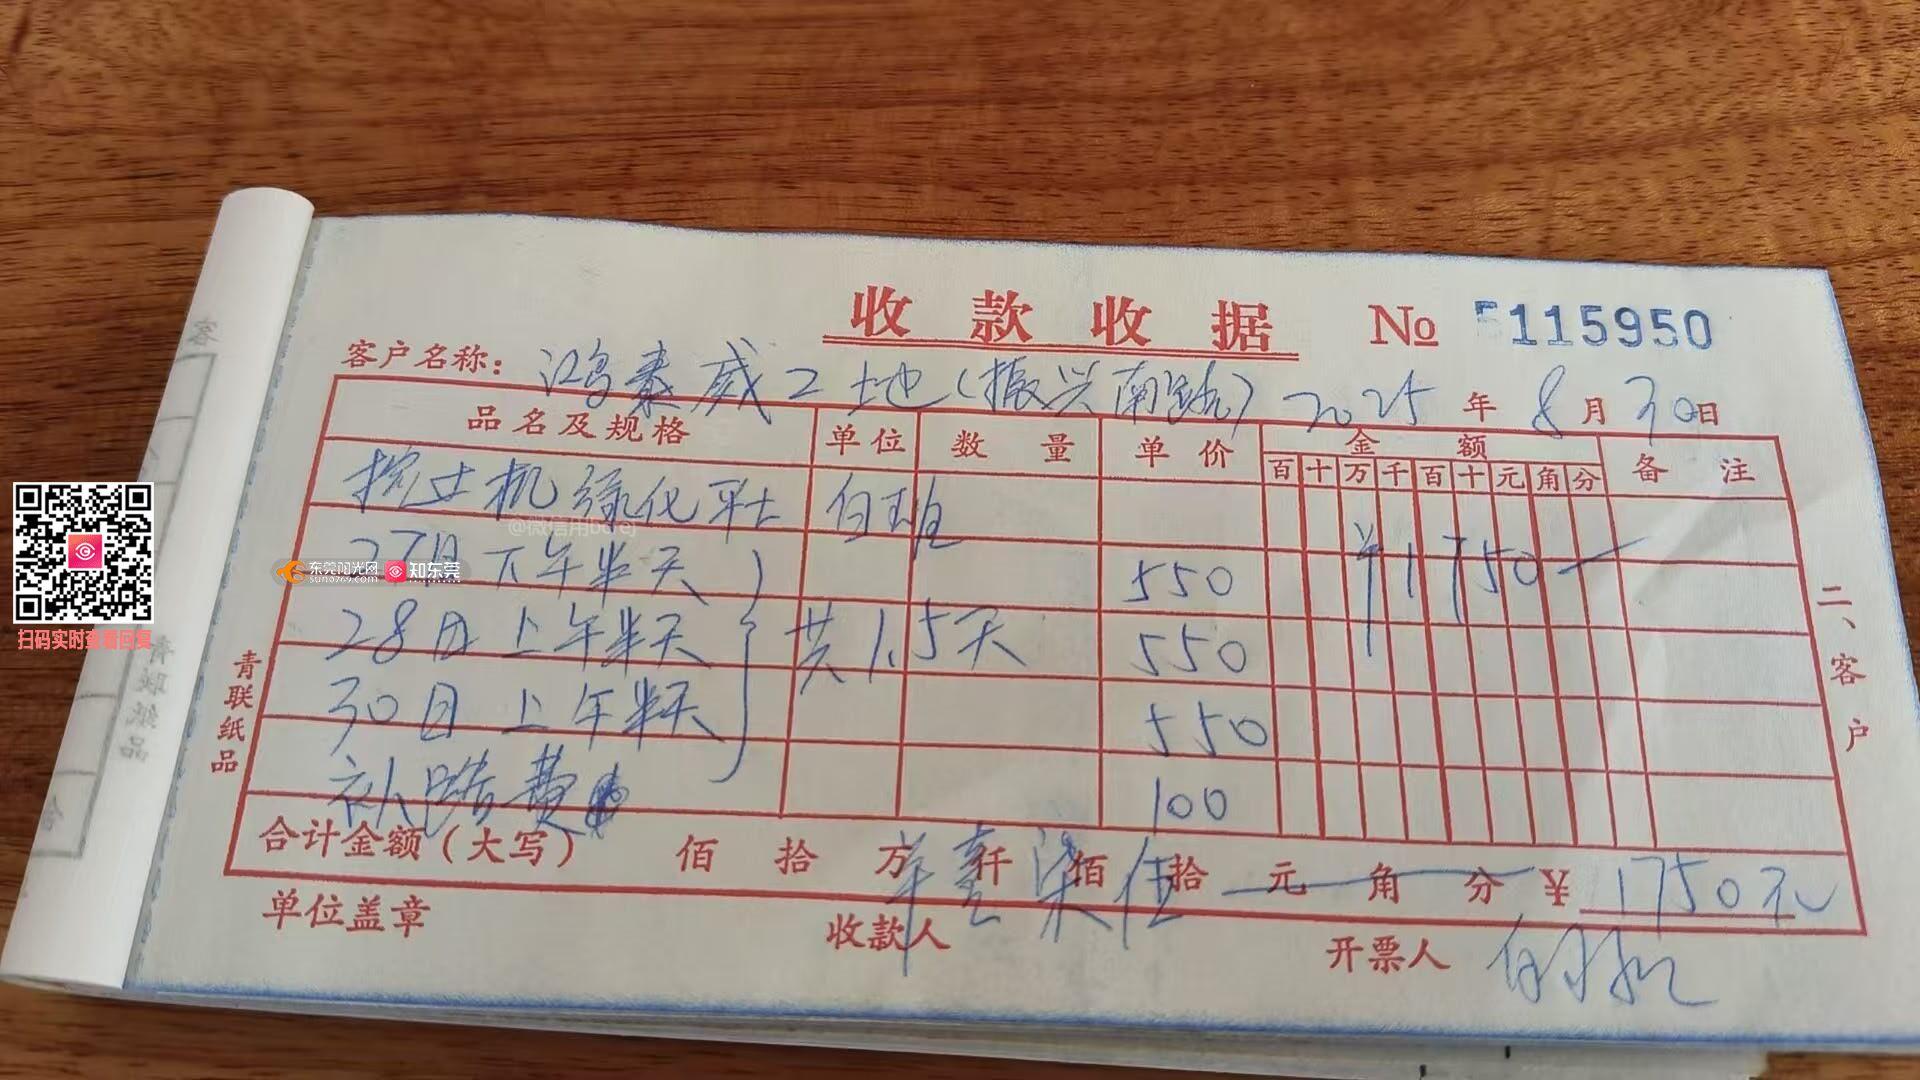 收款收据 No 5115950
客户名称：鸿泰威工地（振兴南路） 2025年8月30日
品名及规格 单位 数量 单价 金额 备注
百 十 万 千 百 十 元 角 分
挖土机绿化平土 白班
27日下午半天 550 ¥1750
28日上午半天 共1.5天 550
30日上午半天 550
补路费 100
合计金额（大写） 佰 拾 万 仟 佰 拾 元 角 分 ¥ 1750元
羊壹柒伍
单位盖章 收款人 开票人
二、客户
青联纸品
@微信用
东莞阳光网
sun0769.com
知东莞
扫码实时查看回复
客
青联纸品
合